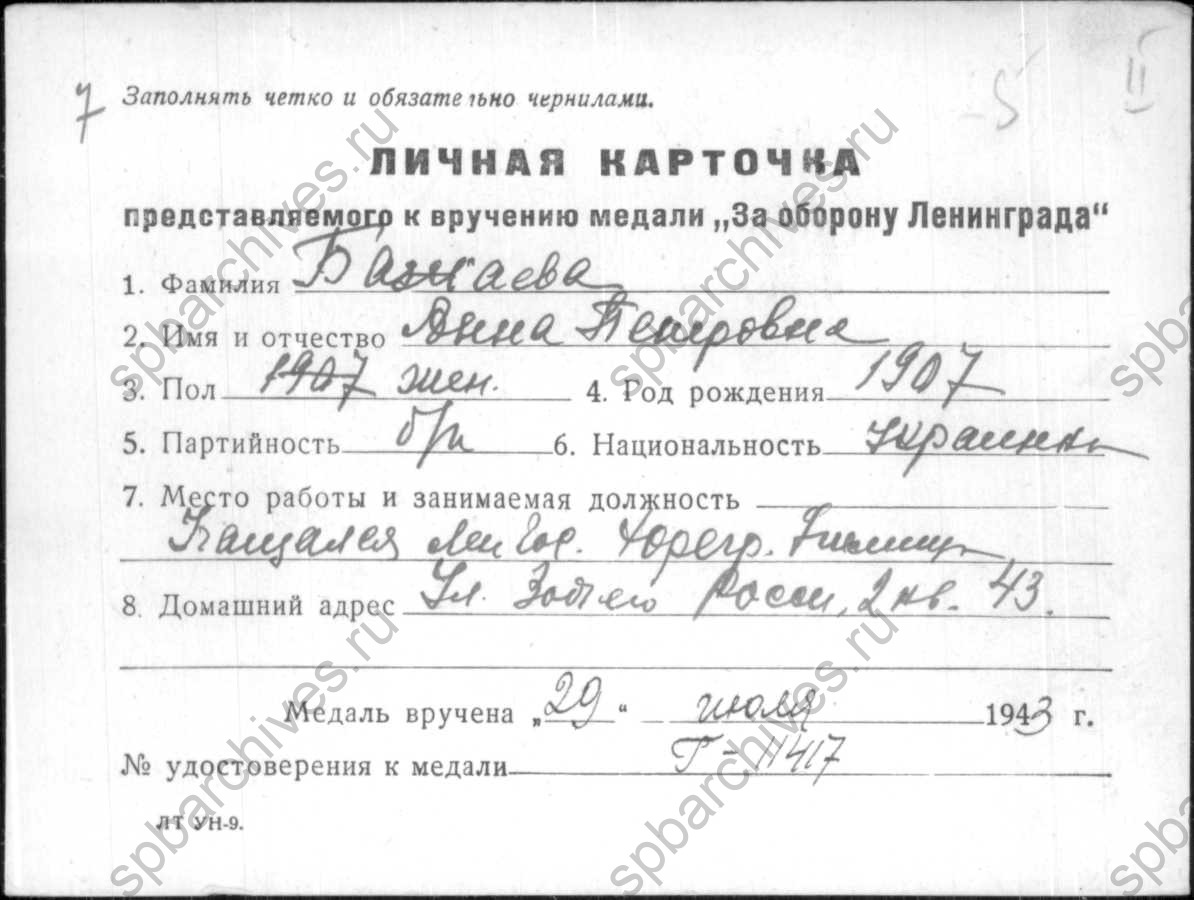 7
Заполнять четко и обязательно чернилами.
-5
II
ЛИЧНАЯ КАРТОЧКА
представляемого к вручению медали „За оборону Ленинграда“
1. Фамилия Бажаева
2. Имя и отчество Анна Петровна
3. Пол 1907 жен. 4. Род рождения 1907
5. Партийность б/п 6. Национальность Украинка
7. Место работы и занимаемая должность
Лен Гос.
8. Домашний адрес Ул. Зодчего Росси, 2 кв. 43.
Медаль вручена „29“ июля 1943 г.
№ удостоверения к медали Г-11417
ЛТ УН-9.
spbarchives.ru
spbarchives.ru
spbarchives.ru
spbarchives.ru